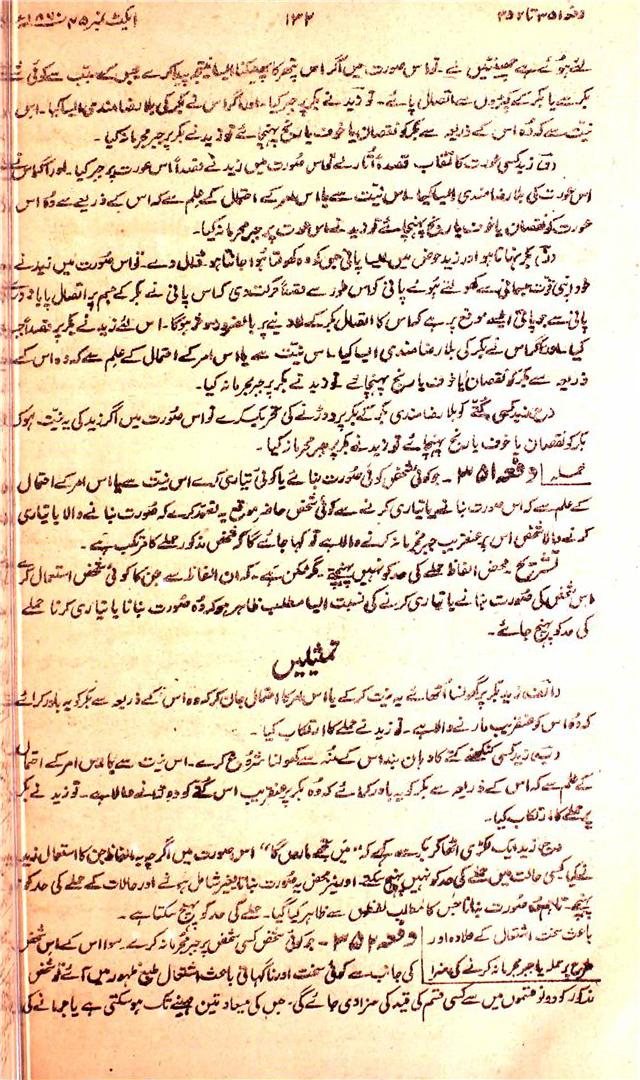 دفعہ ۳۵۱ تا ۳۵۲ ۱۳۲ ایکٹ نمبر ۴۵ ۱۸۶۰ء
اس صورت میں اگر اس پتھر کا پھینکنا ایسا نتیجہ پیدا کرے جس کے سبب سے کوئی شے
بکر سے یا بکر کے کپڑوں سے اتصال پائے۔ تو زید نے بکر پر جبر کیا۔ اور اگر اس نے بکر کی بلا رضامندی ایسا کیا۔ اس
نیت سے کہ وہ اس کے ذریعہ سے بکر کو نقصان یا خوف یا رنج پہنچائے تو زید نے بکر پر جبر مجرمانہ کیا۔
زید کسی عورت کا نقاب قصداً اتارے تو اس صورت میں زید نے قصداً اس عورت پر جبر کیا۔ اور اگر اس نے
اس عورت کی بلا رضامندی ایسا کیا۔ اس نیت سے یا اس امر کے احتمال کے علم سے کہ اس کے ذریعے سے وہ اس
عورت کو نقصان یا خوف یا رنج پہنچائے تو زید نے اس عورت پر جبر مجرمانہ کیا۔
بکر نہاتا ہو اور زید حوض میں ایسا پانی جس کو وہ کھولتا ہوا جانتا ہو ڈال دے۔ تو اس صورت میں زید نے
خود اپنی قوت جسمانی سے کھولتے ہوئے پانی کو اس طور سے قصداً حرکت دی کہ اس پانی نے بکر کے جسم پر اتصال پایا
پانی سے جو پانی ایسے موقع پر ہے کہ اس کا اتصال بکر کے پر بالضرور موثر ہوگا۔ اس لئے زید نے بکر پر قصداً جبر
کیا۔ اور اگر اس نے بکر کی بلا رضامندی ایسا کیا۔ اس نیت سے یا اس امر کے احتمال کے علم سے کہ وہ اس کے
ذریعہ سے بکر کو نقصان یا خوف یا رنج پہنچائے تو زید نے بکر پر جبر مجرمانہ کیا۔
زید کسی کتے کو بلا رضامندی بکر کے بکر پر دوڑنے کی تحریک کرے تو اس صورت میں اگر زید کی یہ نیت ہو کہ
بکر کو نقصان یا خوف یا رنج پہنچائے تو زید نے بکر پر جبر مجرمانہ کیا۔
حملہ دفعہ ۳۵۱۔ جو کوئی شخص کوئی صورت بنائے یا کوئی تیاری کرے اس نیت سے یا اس امر کے احتمال
کے علم سے کہ اس صورت بنانے یا تیاری کرنے سے کوئی شخص حاضر موقع یہ تصور کرے کہ صورت بنانے والا یا تیاری
کرنے والا شخص اس پر عنقریب جبر مجرمانہ کرنے والا ہے تو کہا جائے گا کہ شخص مذکور حملے کا مرتکب ہے۔
تشریح۔ محض الفاظ حملے کی حد کو نہیں پہنچتے۔ مگر ممکن ہے۔ کہ ان الفاظ سے جن کا کوئی شخص استعمال کرے
اس شخص کی صورت بنانے یا تیاری کرنے کی نسبت ایسا مطلب ظاہر ہو کہ وہ صورت بنانا یا تیاری کرنا حملے
کی حد کو پہنچ جائے۔
تمثیلیں
(الف) زید بکر پر گھونسا اٹھائے یہ نیت کر کے یا اس امر کا احتمال جان کر کہ وہ اس کے ذریعہ سے بکر کو یہ باور کرائے
کہ وہ اس کو عنقریب مارنے والا ہے۔ تو زید نے حملے کا ارتکاب کیا۔
(ب) زید کسی کٹکھنے کتے کا دہان بند اس کے منہ سے کھولنا شروع کرے۔ اس نیت سے یا اس امر کے احتمال
کے علم سے کہ اس کے ذریعہ سے بکر کو یہ باور کرائے کہ وہ بکر پر عنقریب اس کتے کو دوڑانے والا ہے۔ تو زید نے بکر
پر حملے کا ارتکاب کیا۔
(ج) زید ایک لکڑی اٹھا کر بکر سے کہے کہ ”میں تجھے ماروں گا“ اس صورت میں اگرچہ یہ الفاظ جن کا استعمال زید
نے کیا کسی حالت میں حملے کی حد کو نہیں پہنچ سکتے۔ اور نیز محض یہ صورت بنانا بغیر شامل ہونے اور حالات کے حملے کی حد کو نہ
پہنچے۔ تاہم وہ صورت بنانا جس کا مطلب لفظوں سے ظاہر کیا گیا۔ حملے کی حد کو پہنچ سکتا ہے۔
باعث سخت اشتعال کے علاوہ اور دفعہ ۳۵۲۔ جو کوئی شخص کسی شخص پر جبر مجرمانہ کرے۔ سوا اس کے اس شخص
طرح پر حملہ یا جبر مجرمانہ کرنے کی سزا کی جانب سے کوئی سخت اور ناگہانی باعث اشتعال طبع ظہور میں آئے تو شخص
مذکور کو دونوں قسموں میں سے کسی قسم کی قید کی سزا دی جائے گی۔ جس کی میعاد تین مہینے تک ہو سکتی ہے یا جرمانے کی